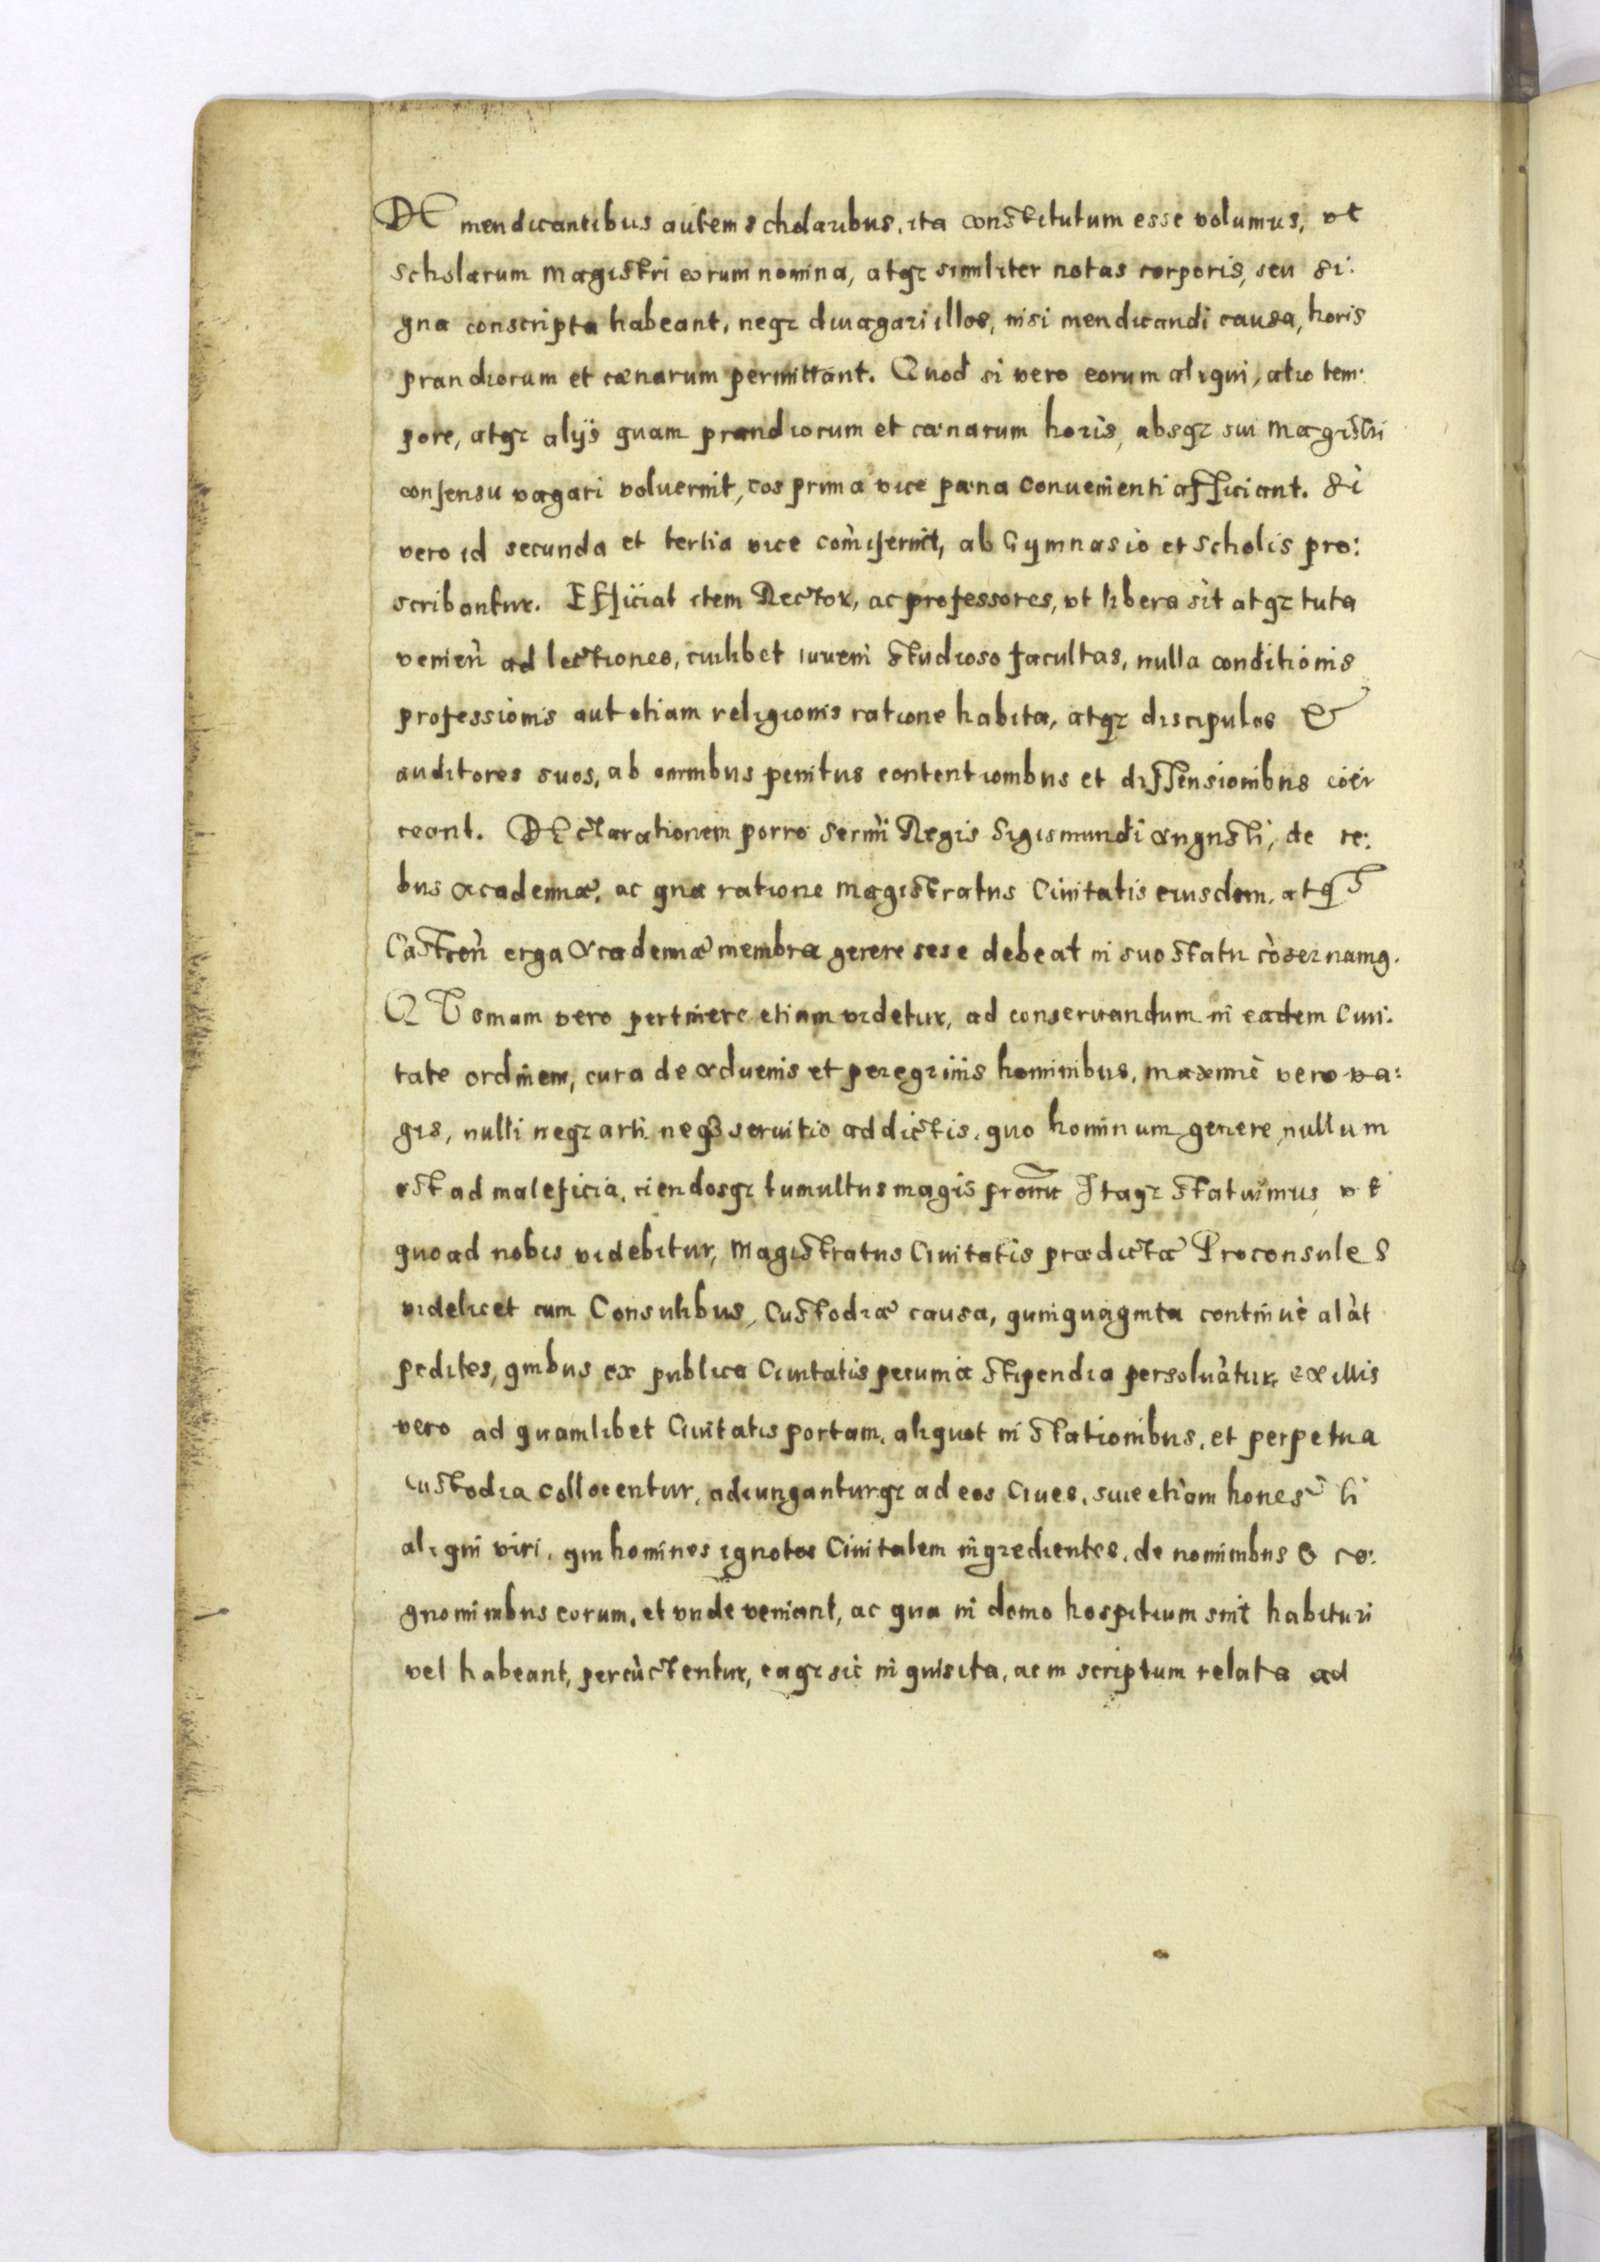 DE mendicantibus autem scholaribus, ita constitutum esse volumus, vt
scholarum Magistri eorum nomina, atqz similiter notas corporis, seu si:
gna conscripta habeant, neqz diuagari illos, nisi mendicandi causa, horis
prandiorum et cænarum permittant. Quod si vero eorum aliqui, alio tem:
pore, atqz alijs quam prandiorum et cænarum horis, absqz sui Magistri
consensu vagari voluerint, eos prima vice pæna conuenienti afficiant. Si
vero id secunda et tertia vice com̄iserint, ab Gymnasio et scholis pro:
scribantur. Efficiat item Rector, ac professores, vt libera sit atqz tuta
venien̄ ad lectiones, cuilibet iuueni studioso facultas, nulla conditionis
professionis aut etiam religionis ratione habita, atqz discipulos &
auditores suos, ab omnibus penitus contentionibus et dissensionibus coër
ceant. DEclarationem porro Serm̄i Regis Sigismundi Augusti, de re:
bus Academiæ, ac qua ratione Magistratus Ciuitatis eiusdem, atqz
Castren̄ erga Academiæ membra gerere sese debeat in suo statu cōseruamq.
QVoniam vero pertinere etiam videtur, ad conseruandum in eadem Ciui:
tate ordinem, cura de aduenis et peregrinis hominibus, maximè vero va:
gis, nulli neqz arti neqz seruitio addictis, quo hominum genere nullum
est ad maleficia, ciendosqz tumultus magis pronū Itaqz statuimus, vt
quoad nobis videbitur, Magistratus Ciuitatis prædictæ Proconsules
videlicet cum Consulibus, Custodiæ causa, quinquaginta continuè alāt
pedites, quibus ex publica Ciuitatis pecunia stipendia persoluātur, ex illis
vero ad quamlibet Ciuitatis portam, aliquot in stationibus, et perpetua
custodia collocentur, adiunganturqz ad eos Ciues, siue etiam honesti
aliqui viri, qui homines ignotos Ciuitatem ingredientes, de nominibus & co:
gnominibus eorum, et vnde veniant, ac qua in domo hospitium sint habituri
vel habeant, percūctentur, eaqz sic inquisita, ac in scriptum relata ad